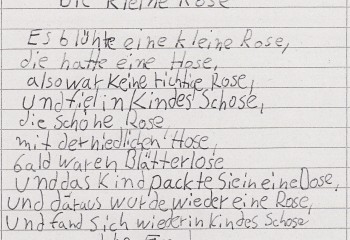 Die kleine Rose
Es blühte eine kleine Rose,
die hatte eine Hose,
also war keine richtige Rose,
Und fiel in Kindes Schose,
die schöhe Rose
mit der niedlichen Hose,
bald waren Blätterlose
Und das Kind packte sie in eine Dose,
und däraus wurde wieder eine Rose,
Und fand sich wieder in Kindes Schose